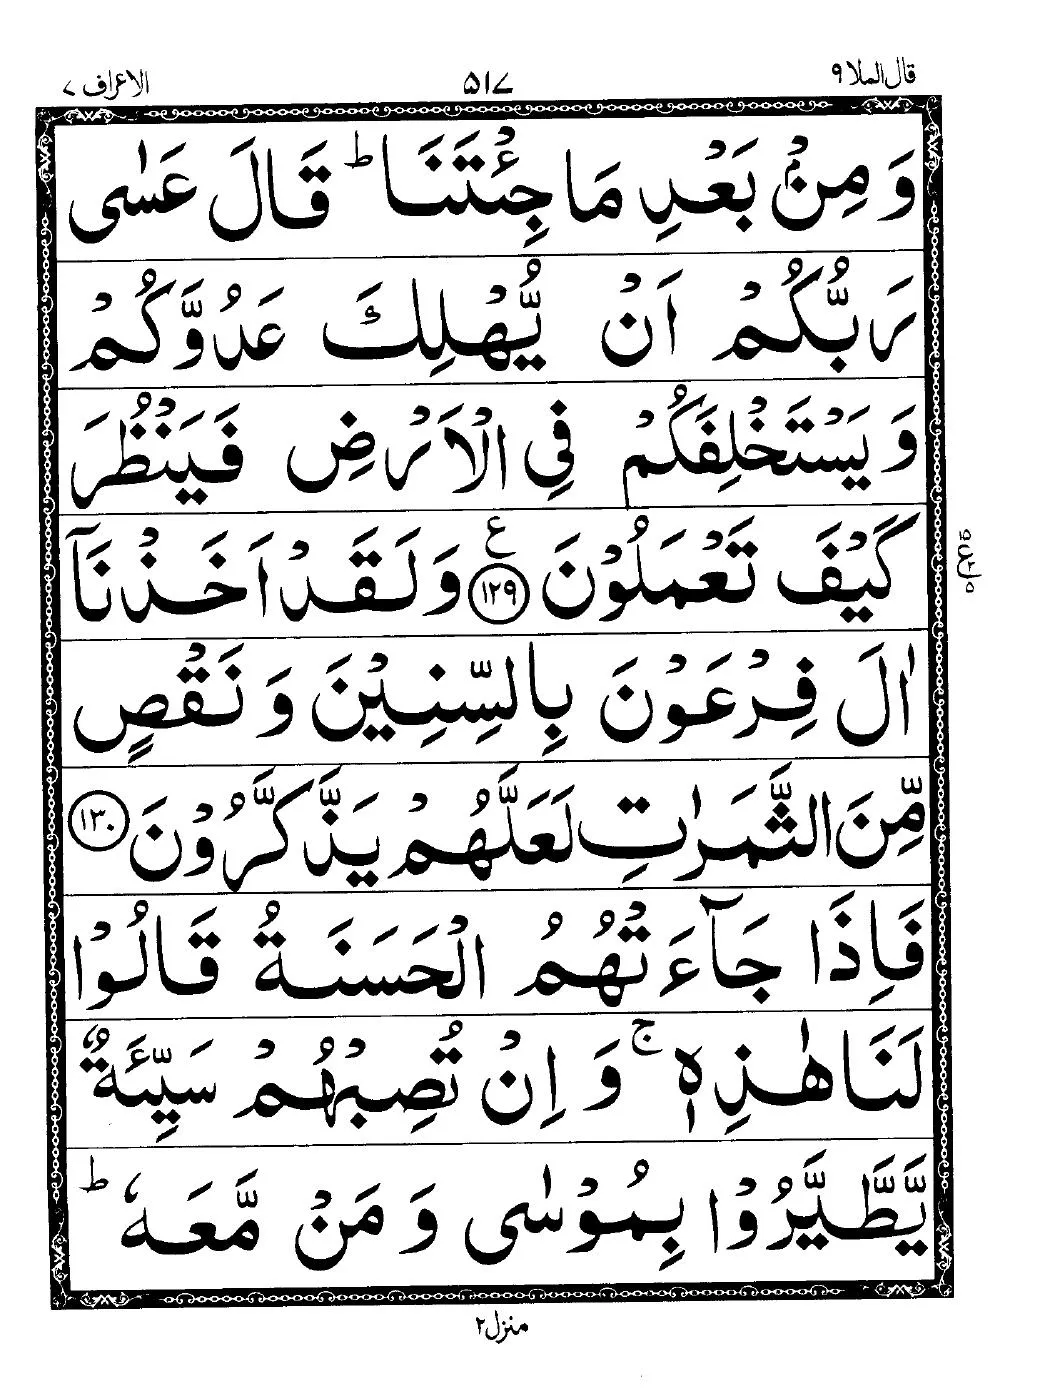 قال الملا ۹
۵۱۷
الاعراف ۷
وَ مِنْۢ بَعْدِ مَا جِئْتَنَا ؕ قَالَ عَسٰی
رَبُّكُمْ اَنْ یُّهْلِكَ عَدُوَّكُمْ
وَ یَسْتَخْلِفَكُمْ فِی الْاَرْضِ فَیَنْظُرَ
كَیْفَ تَعْمَلُوْنَ ﴿۱۲۹﴾ ع وَ لَقَدْ اَخَذْنَاۤ
اٰلَ فِرْعَوْنَ بِالسِّنِیْنَ وَ نَقْصٍ
مِّنَ الثَّمَرٰتِ لَعَلَّهُمْ یَذَّكَّرُوْنَ ﴿۱۳۰﴾
فَاِذَا جَآءَتْهُمُ الْحَسَنَةُ قَالُوْا
لَنَا هٰذِهٖ ۚ وَ اِنْ تُصِبْهُمْ سَیِّئَةٌ
یَّطَّیَّرُوْا بِمُوْسٰی وَ مَنْ مَّعَهٗ ؕ
منزل ۲